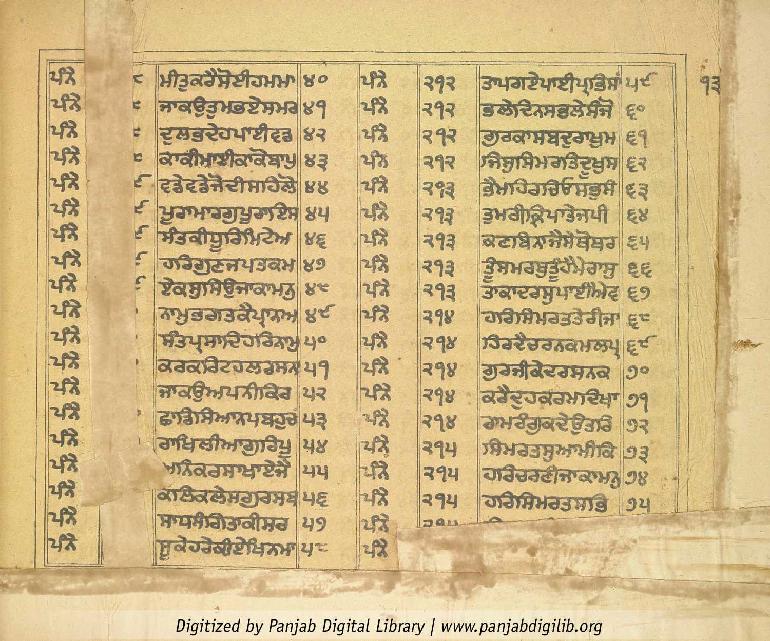 ਪੰਨੇ ਮੀਤੁਕਰੈਸੋਈਹਮਮਾ ੪੦ ਪੰਨੇ ੨੧੨ ਤਾਪਗਏਪਾਈਪ੍ਰਭਿਸਾਂ ੫੯ ੧੩
ਪੰਨੇ ਜਾਕਉਤੁਮਭਏਸਮਰ ੪੧ ਪੰਨੇ ੨੧੨ ਭਲੇਦਿਨਸਭਲੇਸੰਜੋ ੬੦
ਪੰਨੇ ਦੁਲਭਦੇਹਪਾਈਵਡ ੪੨ ਪੰਨੇ ੨੧੨ ਗੁਰਕਾਸਬਦੁਰਾਖੁਮ ੬੧
ਪੰਨੇ ਕਾਕੀਮਾਈਕਾਕੋਬਾਪੁ ੪੩ ਪੰਨੇ ੨੧੨ ਜਿਸੁਸਿਮਰਤਿਦੂਖੁਸ ੬੨
ਪੰਨੇ ਵਡੇਵਡੇਜੋਦੀਸਹਿਲੋ ੪੪ ਪੰਨੇ ੨੧੩ ਭੈਮਹਿਰਚਿਓਸਭੁਸੰ ੬੩
ਪੰਨੇ ਪੂਰਾਮਾਰਗੁਪੂਰਾਇਸ ੪੫ ਪੰਨੇ ੨੧੩ ਤੁਮਰੀਕ੍ਰਿਪਾਤੇਜਪੀ ੬੪
ਪੰਨੇ ਸੰਤਕੀਧੂਰਿਮਿਟੇਅ ੪੬ ਪੰਨੇ ੨੧੩ ਕਣਬਿਨਾਜੈਸੇਥੋਥਰ ੬੫
ਪੰਨੇ ਹਰਿਗੁਣਜਪਤਕਮ ੪੭ ਪੰਨੇ ੨੧੩ ਤੂੰਸਮਰਥੁਤੂੰਹੈਮੇਰਾਸੁ ੬੬
ਪੰਨੇ ਏਕਸੁਸਿਉਜਾਕਾਮਨੁ ੪੮ ਪੰਨੇ ੨੧੩ ਤਾਕਾਦਰਸੁਪਾਈਐਵ ੬੭
ਪੰਨੇ ਨਾਮੁਭਗਤਕੈਪ੍ਰਾਨਅ ੪੯ ਪੰਨੇ ੨੧੪ ਹਰਿਸਿਮਰਤਤੇਰੀਜਾ ੬੮
ਪੰਨੇ ਸੰਤਪ੍ਰਸਾਦਿਹਰਿਨਾਮੁ ੫੦ ਪੰਨੇ ੨੧੪ ਹਿਰਦੈਚਰਨਕਮਲਪ੍ਰ ੬੯
ਪੰਨੇ ਕਰਕਰਿਟਹਲਰਸਨਾ ੫੧ ਪੰਨੇ ੨੧੪ ਗੁਰਜੀਕੇਦਰਸਨਕ ੭੦
ਪੰਨੇ ਜਾਕਉਅਪਨੀਕਿਰ ੫੨ ਪੰਨੇ ੨੧੪ ਕਰੈਦੁਹਕਰਮਦਿਖਾ ੭੧
ਪੰਨੇ ਛਾਡਿਸਿਆਨਪਬਹੁਚ ੫੩ ਪੰਨੇ ੨੧੪ ਰਾਮਰੰਗੁਕਦੇਉਤਰਿ ੭੨
ਪੰਨੇ ਰਾਖਿਲੀਆਗੁਰਿਪੂ ੫੪ ਪੰਨੇ ੨੧੫ ਸਿਮਰਤਸੁਆਮੀਕਿ ੭੩
ਪੰਨੇ ਅਨਿਕਰਸਾਖਾਏਜੈ ੫੫ ਪੰਨੇ ੨੧੫ ਹਰਿਚਰਣੀਜਾਕਾਮਨੁ ੭੪
ਪੰਨੇ ਕਲਿਕਲੇਸਗੁਰਸਬ ੫੬ ਪੰਨੇ ੨੧੫ ਹਰਿਸਿਮਰਤਸਭਿ ੭੫
ਪੰਨੇ ਸਾਧਸੰਗਿਤਾਕੀਸਰ ੫੭ ਪੰਨੇ
ਪੰਨੇ ਸੂਕੇਹਰੇਕੀਏਖਿਨਮਾ ੫੮ ਪੰਨੇ
Digitized by Panjab Digital Library | www.panjabdigilib.org